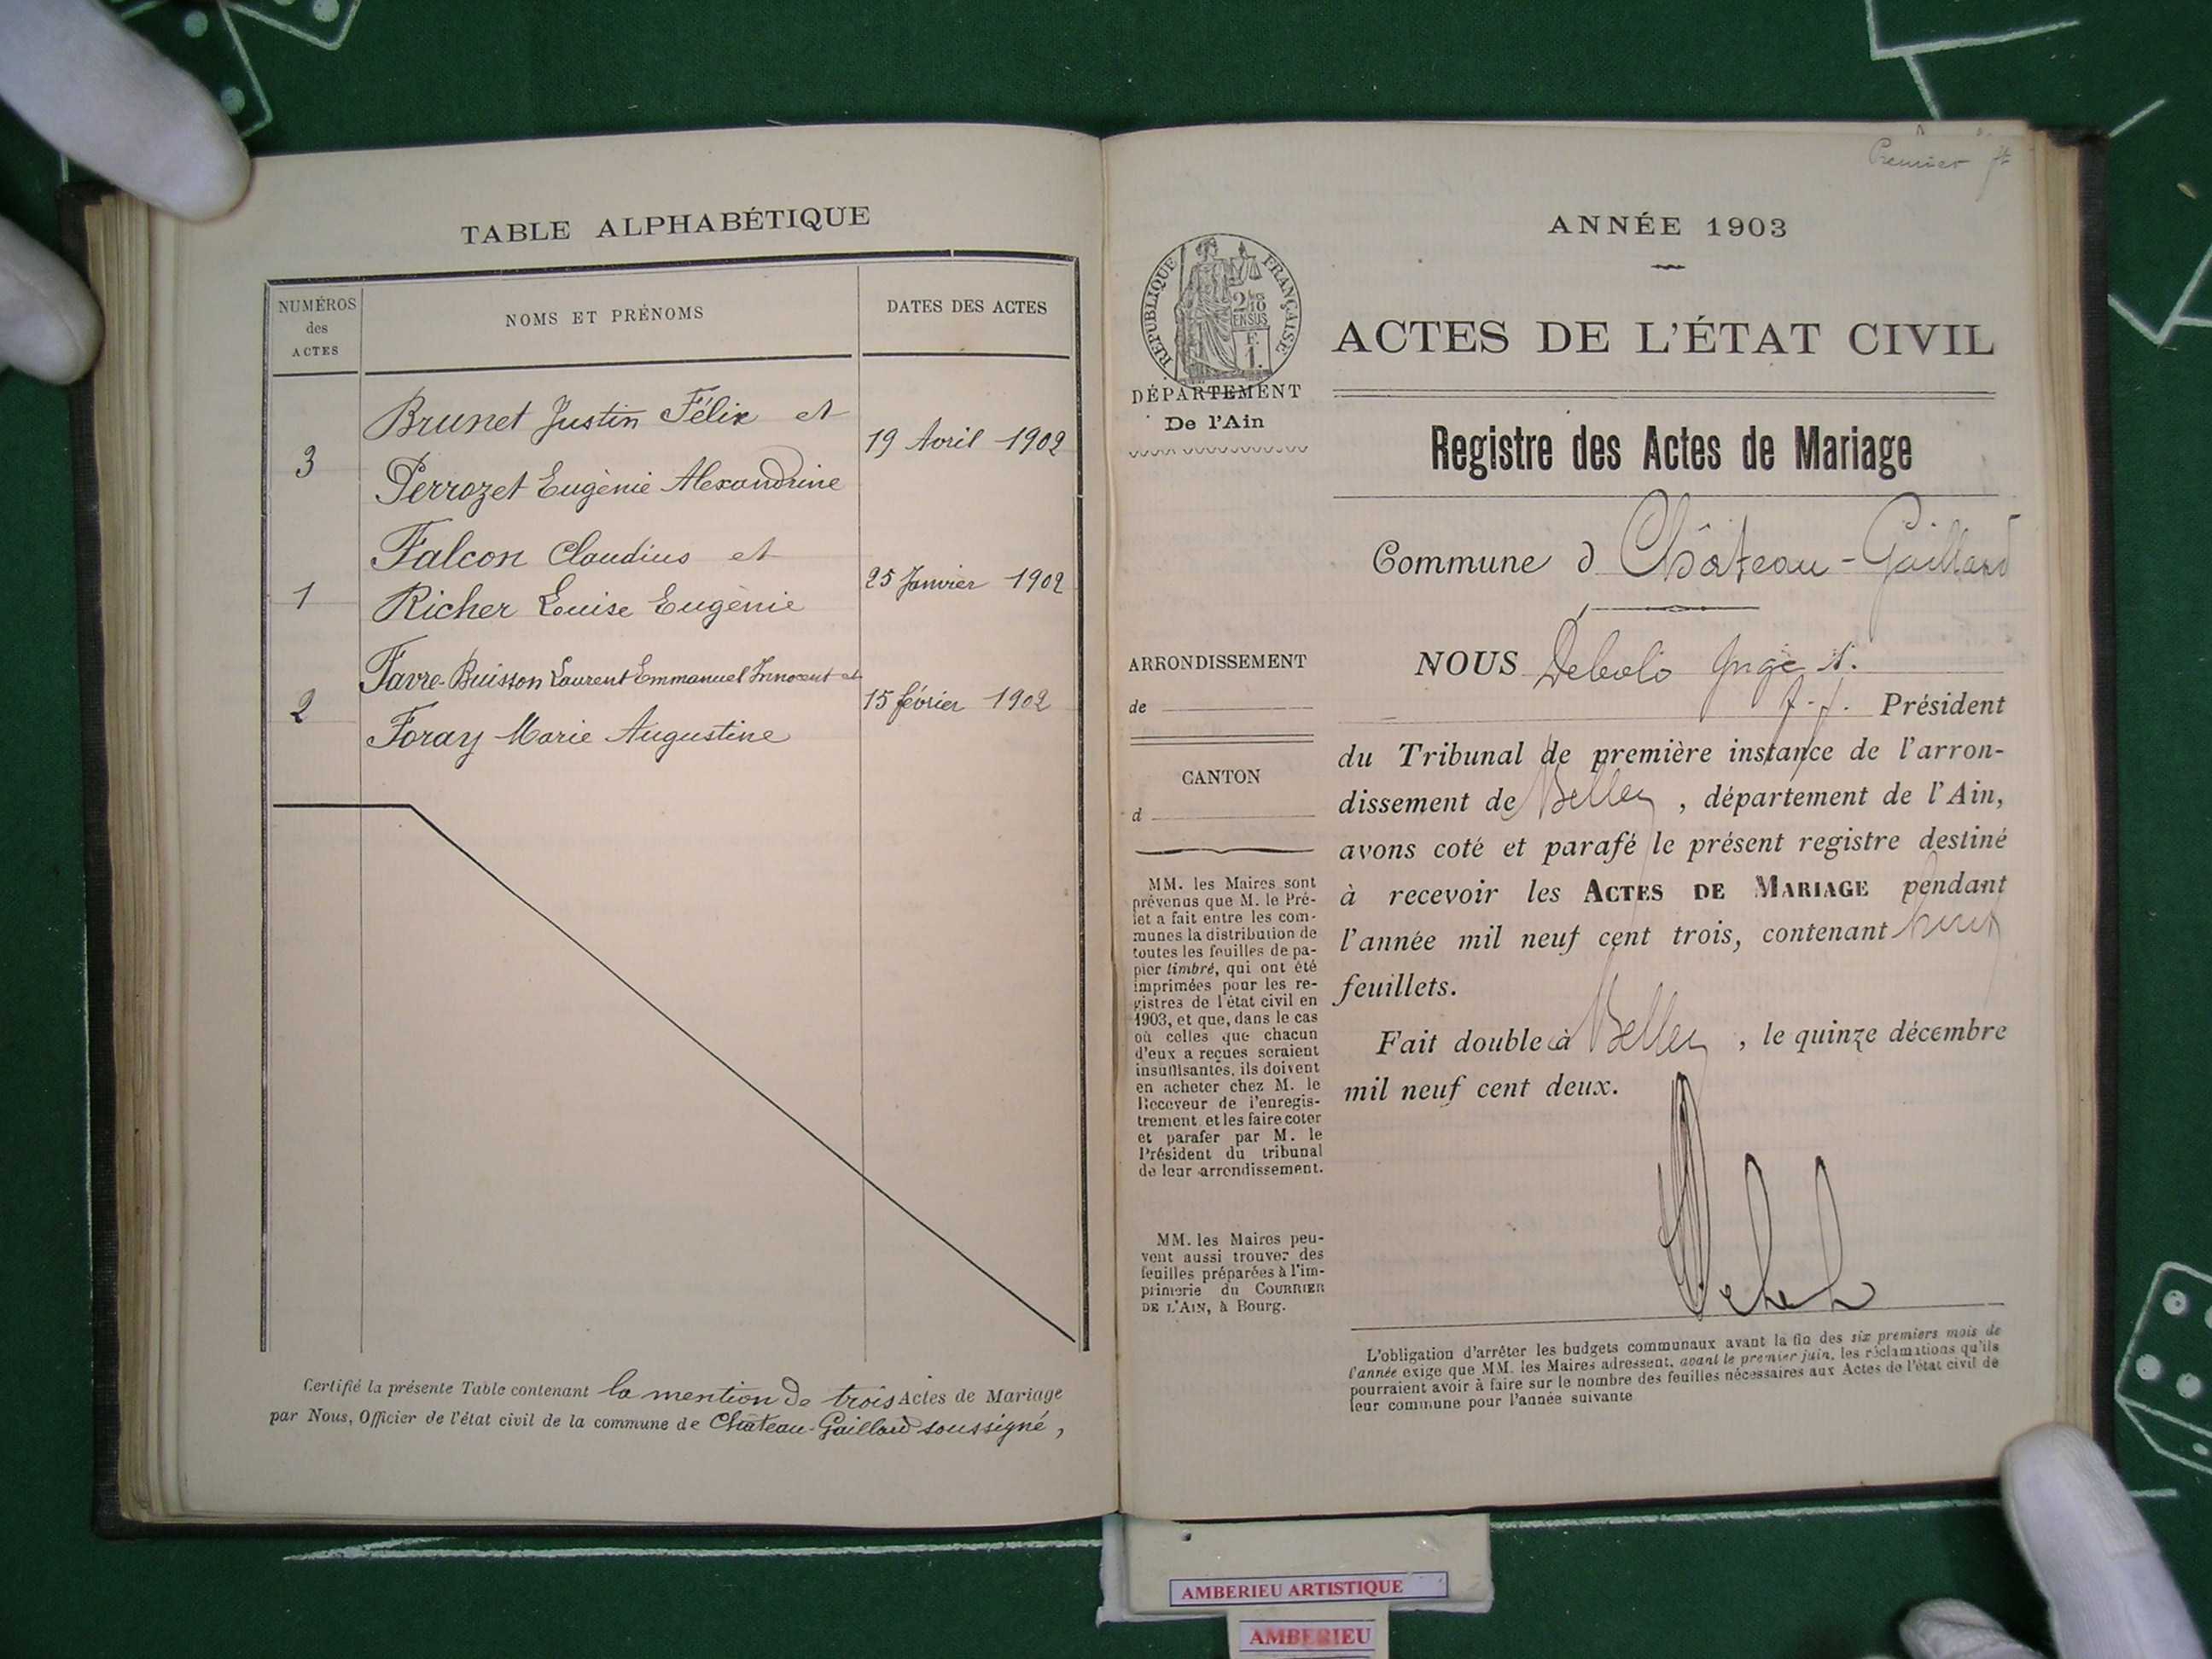 TABLE ALPHABÉTIQUE
NUMÉROS
des
ACTES
NOMS ET PRÉNOMS
DATES DES ACTES
3
Brunet Justin Félix et
Perrozet Eugènie Alexandrine
19 Avril 1902
1
Falcon Claudius et
Richer Louise Eugènie
25 Janvier 1902
2
Favre-Buisson Laurent Emmanuel Innocent et
Foray Marie Augustine
15 février 1902
Certifié la présente Table contenant la mention de trois Actes de Mariage
par Nous, Officier de l'état civil de la commune de Château-Gaillard soussigné,
Premier
ANNÉE 1903
RÉPUBLIQUE FRANÇAISE
DÉPARTEMENT
De l'Ain
ACTES DE L'ÉTAT CIVIL
Registre des Actes de Mariage
Commune d Château-Gaillard
ARRONDISSEMENT
de
CANTON
d
MM. les Maires sont
prévenus que M. le Pré-
fet a fait entre les com-
munes la distribution de
toutes les feuilles de pa-
pier timbré, qui ont été
imprimées pour les re-
gistres de l'état civil en
1903, et que, dans le cas
où celles que chacun
d'eux a reçues seraient
insuffisantes, ils doivent
en acheter chez M. le
Receveur de l'enregis-
trement et les faire coter
et parafer par M. le
Président du tribunal
de leur arrondissement.
MM. les Maires peu-
vent aussi trouver des
feuilles préparées à l'im-
primerie du COURRIER
DE L'AIN, à Bourg.
NOUS
f.f. Président
du Tribunal de première instance de l'arron-
dissement de Belley, département de l'Ain,
avons coté et parafé le présent registre destiné
à recevoir les ACTES DE MARIAGE pendant
l'année mil neuf cent trois, contenant huit
feuillets.
Fait double à Belley, le quinze décembre
mil neuf cent deux.
L'obligation d'arrêter les budgets communaux avant la fin des six premiers mois de
l'année exige que MM. les Maires adressent, avant le premier juin, les réclamations qu'ils
pourraient avoir à faire sur le nombre des feuilles nécessaires aux Actes de l'état civil de
leur commune pour l'année suivante
AMBERIEU ARTISTIQUE
AMBERIEU